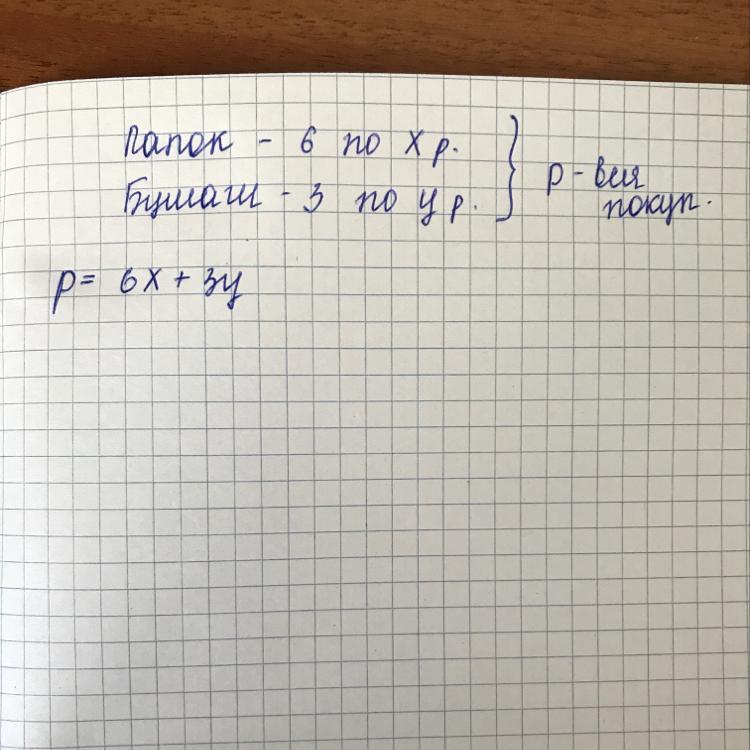 Папок - 6 по x р.
Бумаш - 3 по y р.
} p - вся
покуп.
p = 6x + 3y